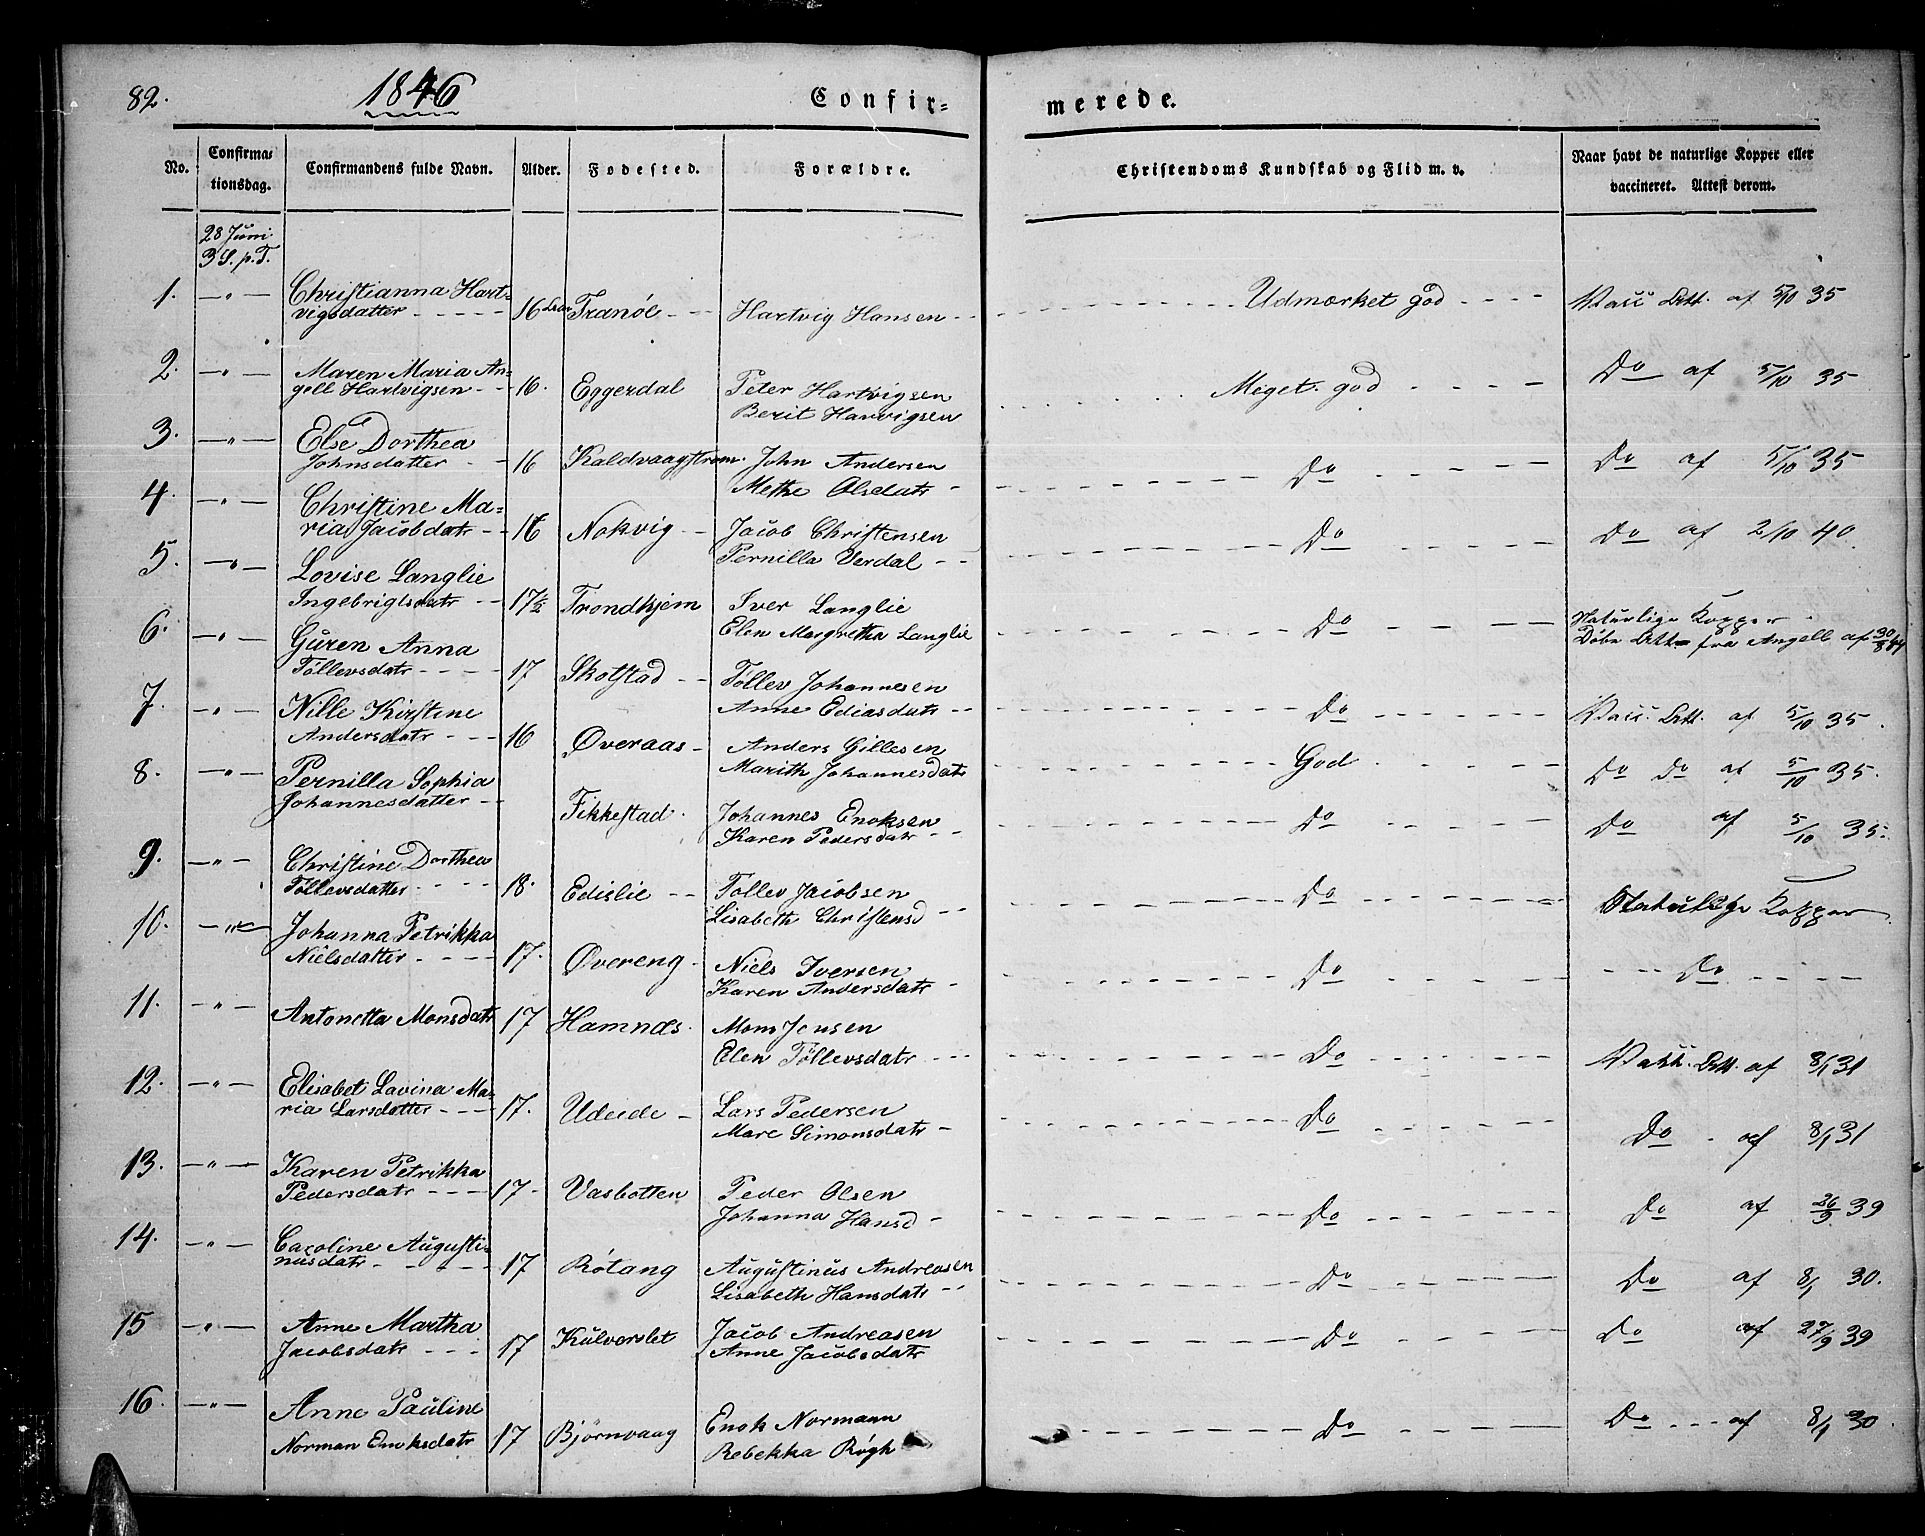 82.
1846
Confir=
merede.
No.
Confirma=
tionsdag.
Confirmandens fulde Navn.
Alder.
Fødested.
Forældre.
Christendoms Kundskab og Flid m. v.
Naar havt de naturlige Kopper eller
vaccineret. Attest derom.
28 Juni
3 S. p. T.
1. — " — Christianna Hart=
vigsdatter - - - - - 16 Tranøe - - Hartvig Hansen - - Udmærket god - - - - Vacc. Att. af 5/10 35
2. — " — Maren Maria An=
gell Hartvigsen - - 16. Eggerdal Peter Hartvigsen Meget god - - - - Do af 5/10 35
Berit Harvigsen
3. — " — Else Dorthea
Johnsdatter - - 16 Kaldvaagstrøm. John Andersen Do Do af 5/10 35
Methe Olsdatr -
4. — " — Christine Ma=
ria Jacobdatr - - 16 Nokvig - - Jacob Christensen Do Do af 2/10 40.
Pernilla Verdal - -
5. — " — Lovise Langlie
Ingebrigtsdatr - - 17½ Trondhjem Iver Langlie Do Naturlige Kopper
Elen Margretha Langlie Døbe Att fra Angell af 30/8 44
6. — " — Guren Anna
Tøllevsdatr - - - - 17 Skotstad - - Tøllev Johannesen Do Vacc. Att. af 5/10 35.
Anne Ediasdatr - -
7. — " — Nille Kirstine
Andersdatr - - - 16 Øveraas - Anders Gillesen God Do Do af 5/10 35.
Marith Johannesdatr
8. — " — Pernilla Sophia
Johannesdatter - - Fikkestad. Johannes Enoksen Do Do af 5/10 35.
Karen Pedersdatr - -
9. — " — Christine Dorthea
Tøllevsdatter - - - - 18. Edislie - - Tøllev Jacobsen Do Naturlige Kopper
Lisabeth Christensd - -
10. — " — Johanna Petrikka
Nielsdatter - - - - 17. Øvereng - Niels Iversen Do - - - Do - - - -
Karen Andersdatr -
11. — " — Antonetta Monsdatr 17 Hamnes. Mons Jensen
Elen Tøllevsdatr - - - Do Vakk. Att. af 8/1 31
12. — " — Elisabet Lavina Ma=
ria Larsdatter - - - 17. Udeide - Lars Pedersen Do Do - af 8/1 31
Mare Simonsdatr -
13. — " — Karen Petrikka
Pedersdatr - - - 17 - Vasbotten Peder Olsen Do Do af 26/9 39
Johanna Hansd -
14. — " — Caroline Augusti=
nusdatr - - - - 17 Røtang Augustinus Andreasen Do Do af 8/1 30.
Lisabeth Hansdatr - -
15 — " — Anne Martha
Jacobsdatr - - - 17 Kulverslet Jacob Andreasen Do Do af 27/9 39
Anne Jacobsdatr
16. — " — Anne Pauline
Norman Enoksdatr 17 Bjørnvaag Enok Normann Do Do - - - af 8/1 30
Rebekka Røgh